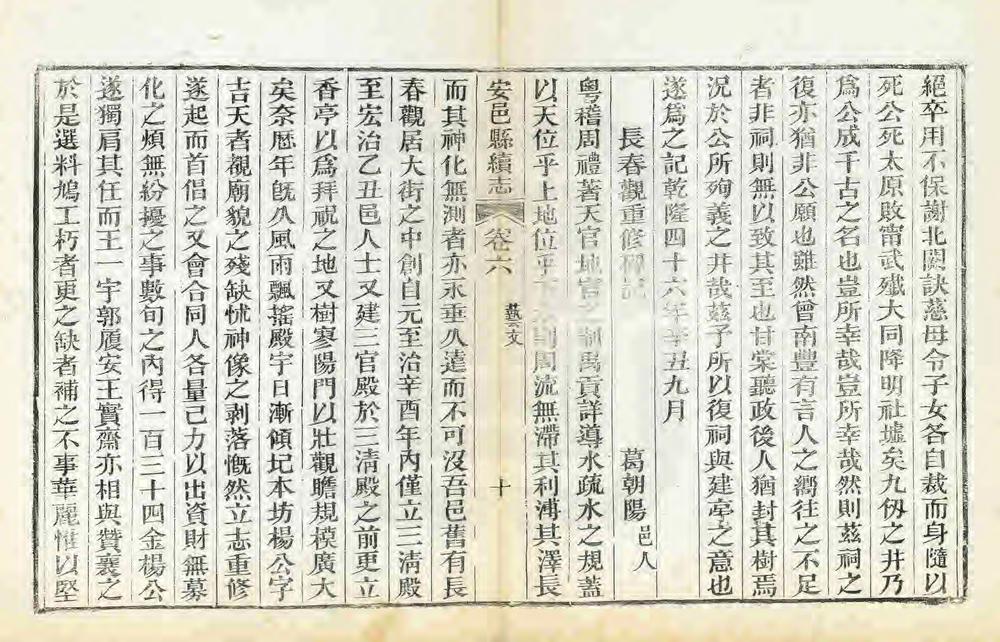 絕卒用不保謝北闕訣慈母令子女各自裁而身隨以
死公死太原敗甯武殲大同降明社墟矣九仞之井乃
爲公成千古之名也豈所幸哉豈所幸哉然則茲祠之
復亦猶非公願也雖然曾南豐有言人之嚮往之不足
者非祠則無以致其至也甘棠聽政後人猶封其樹焉
況於公所殉義之井哉茲予所以復祠與建亭之意也
遂爲之記乾隆四十六年辛丑九月
長春觀重修碑記 葛朝陽 邑人
粵稽周禮著天官地官之制禹貢詳導水疏水之規蓋
以天位乎上地位乎下水則周流無滯其利溥其澤長
安邑縣續志 卷六 藝文 十
而其神化無測者亦永垂久遠而不可沒吾邑舊有長
春觀居大街之中創自元至治辛酉年內僅立三清殿
至宏治乙丑邑人士又建三官殿於三清殿之前更立
香亭以爲拜祝之地又樹寥陽門以壯觀瞻規模廣大
矣奈歷年旣久風雨飄搖殿宇日漸傾圮本坊楊公字
吉天者覩廟貌之殘缺恍神像之剥落慨然立志重修
遂起而首倡之又會合同人各量己力以出資財無募
化之煩無紛擾之事數旬之內得一百三十四金楊公
遂獨肩其任而王一宇郭履安王實齋亦相與贊襄之
於是選料鳩工朽者更之缺者補之不事華麗惟以堅